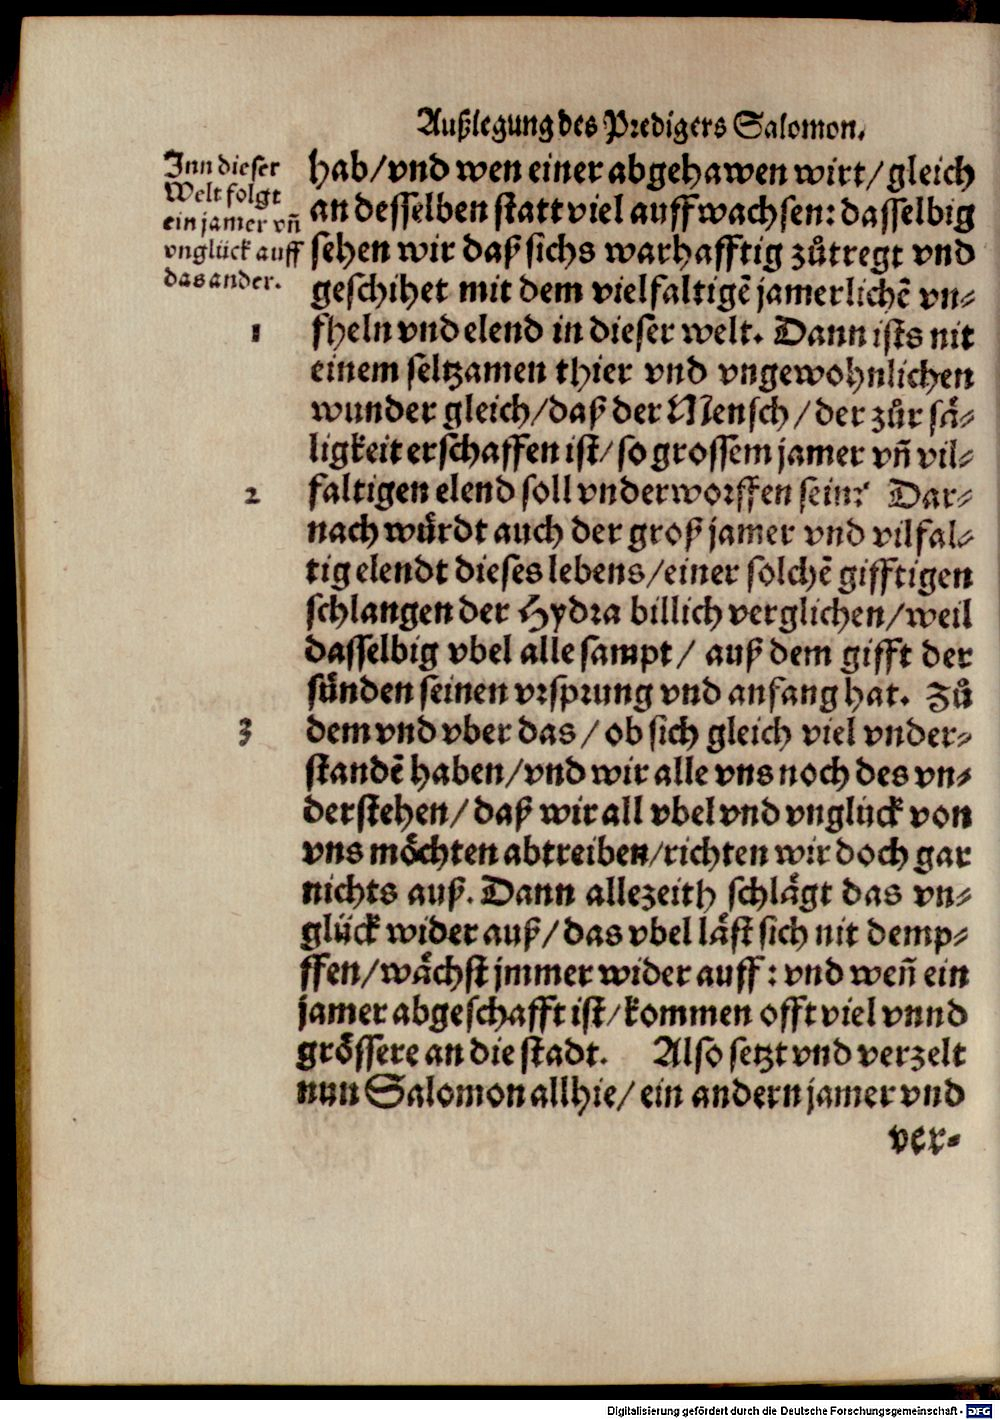 Außlegung des Predigers Salomon.
Inn dieser
Welt folgt
ein jamer vñ
vnglück auff
das ander.
hab/vnd wen einer abgehawen wirt/gleich
an desselben statt viel auffwachsen: dasselbig
sehen wir daß sichs warhafftig zůtregt vnd
geschihet mit dem vielfaltigē jamerlichē vn-
1
fheln vnd elend in dieser welt. Dann ists nit
einem seltzamen thier vnd vngewohnlichen
wunder gleich/daß der Mensch/der zůr sä-
ligkeit erschaffen ist/so grossem jamer vñ vil-
2
faltigen elend soll vnderworffen sein? Dar-
nach würdt auch der groß jamer vnd vilfal-
tig elendt dieses lebens/einer solchē gifftigen
schlangen der Hydra billich verglichen/weil
dasselbig vbel alle sampt/ auß dem gifft der
sünden seinen vrsprung vnd anfang hat. Zů
3
dem vnd vber das/ ob sich gleich viel vnder-
standē haben/vnd wir alle vns noch des vn-
derstehen/daß wir all vbel vnd vnglück von
vns möchten abtreiben/richten wir doch gar
nichts auß. Dann allezeith schlägt das vn-
glück wider auß/das vbel läst sich nit demp-
ffen/wächst jmmer wider auff: vnd weñ ein
jamer abgeschafft ist/kommen offt viel vnnd
grössere an die stadt. Also setzt vnd verzelt
nun Salomon allhie/ein andern jamer vnd
ver-
Digitalisierung gefördert durch die Deutsche Forschungsgemeinschaft - DFG